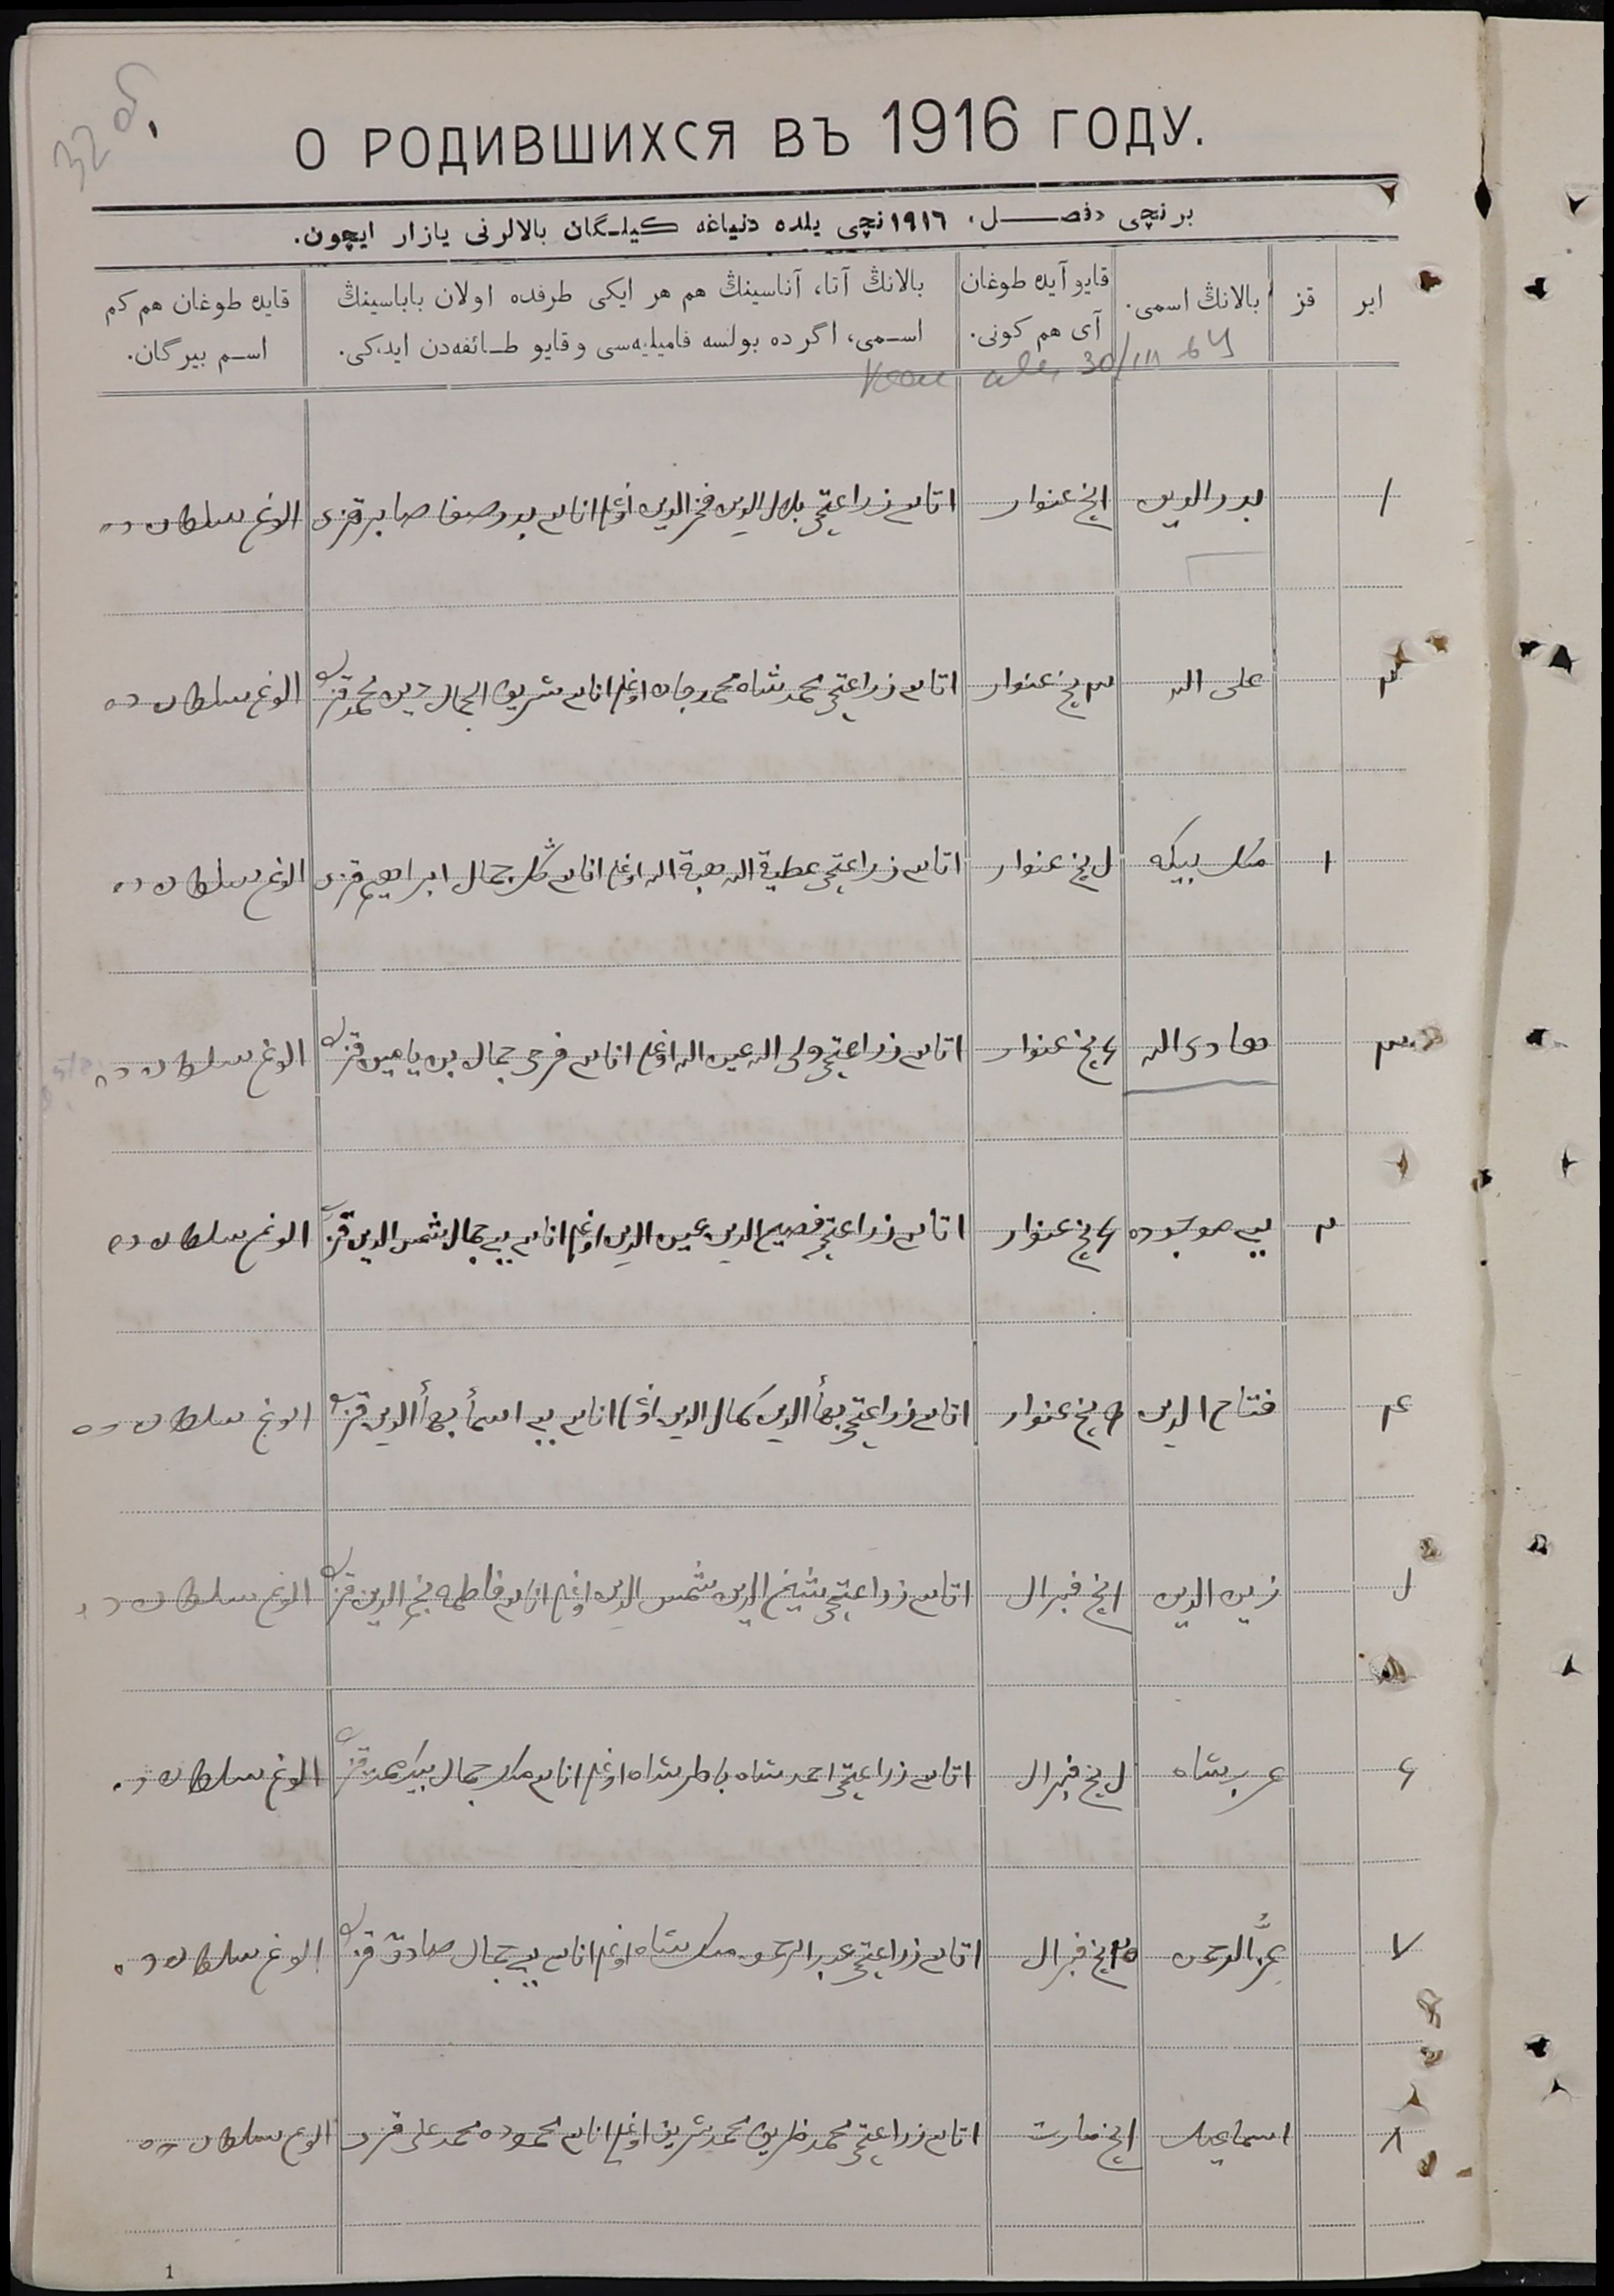 32 об.
О РОДИВШИХСЯ ВЪ 1916 ГОДУ.
برنچی «فصل» ١٩١٦نچی یلده دنیاغه كیلگان بالالرنی یازار ایچون.
ایر قز بالانڭ اسمی. قایو آیده طوغان آی هم كونی. بالانڭ آتا، آناسینڭ هم هر ایكی طرفده اولان باباسینڭ اسمی، اگر ده بولسه فامیلیه‌سی و قایو طائفه‌دن ایدكی. قایده طوغان هم كم اسم بیرگان.
30/III 64
١ بدرالدین ١نچ غنوار اتاسی زراعتچی بلال الدین فخرالدین اوغلی اناسی بدر صفا صابر قزی الوغ سلطان ده
٢ علی الله ٣نچ غنوار اتاسی زراعتچی محمدشاه محمدجان اوغلی اناسی شریف الجمال دین محمد قزی الوغ سلطان ده
١ ملك بیكه نچ غنوار اتاسی زراعتچی عطیة الله هبة الله اوغلی اناسی جمال ابراهیم قزی الوغ سلطان ده
٣ هادی الله نچ غنوار اتاسی زراعتچی ولی الله عین الله اوغلی اناسی فرحی جمال بن یامین قزی الوغ سلطان ده
٢ بی بی موجوده نچ غنوار اتاسی زراعتچی فصیح الدین عین الدین اوغلی اناسی بی بی جمال شمس الدین قزی الوغ سلطان ده
٤ فتاح الدین نچ غنوار اتاسی زراعتچی بهأالدین كمال الدین اوغلی اناسی بی بی اسمأ بهأالدین قزی الوغ سلطان ده
٥ زین الدین ١نچ فبرال اتاسی زراعتچی شیخ الدین شمس الدین اوغلی اناسی فاطمه نجم الدین قزی الوغ سلطان ده
٦ عرب شاه نچ فبرال اتاسی زراعتچی احمدشاه باطرشاه اوغلی اناسی ملك جمال قزی الوغ سلطان ده
٧ عزّالرحمن ٢٥نچ فبرال اتاسی زراعتچی عبدالرحمن ملك شاه اوغلی اناسی بی بی جمال صادق قزی الوغ سلطان ده
٨ اسماعیل ١نچ مارت اتاسی زراعتچی محمدظریف محمدشریف اوغلی اناسی محموده محمدعلی قزی الوغ سلطان ده
1